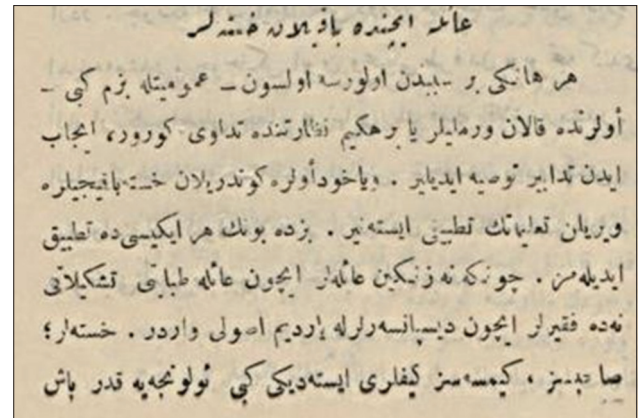 عائله ایچنده باقیلان خسته لر
هر هانكی بر سببدن اولورسه اولسون ـ عمومیتله بزم كبی ـ
أولرنده قالان ورملیلر یا بر حكیم نظارتنده تداوی كورور، ایجاب
ایدن تدابیر توصیه ایدیلیر . ویاخود أولره كوندریلان خسته باقیجیلره
ویریلن تعلیماتك تطبیقی ایسته نیر . بزده بونك هر ایكیسی ده تطبیق
ایدیله مز . چونكه نه زنكین عائله لر ایچون عائله طبابتی تشكیلاتی
نه ده فقیرلر ایچون دیسپانسه رلرله یاردیم اصولی واردر . خسته لر؛
صاحبسز ، كیمسه سز كیفلری ایسته دیكی كبی ئولونجه یه قدر باش